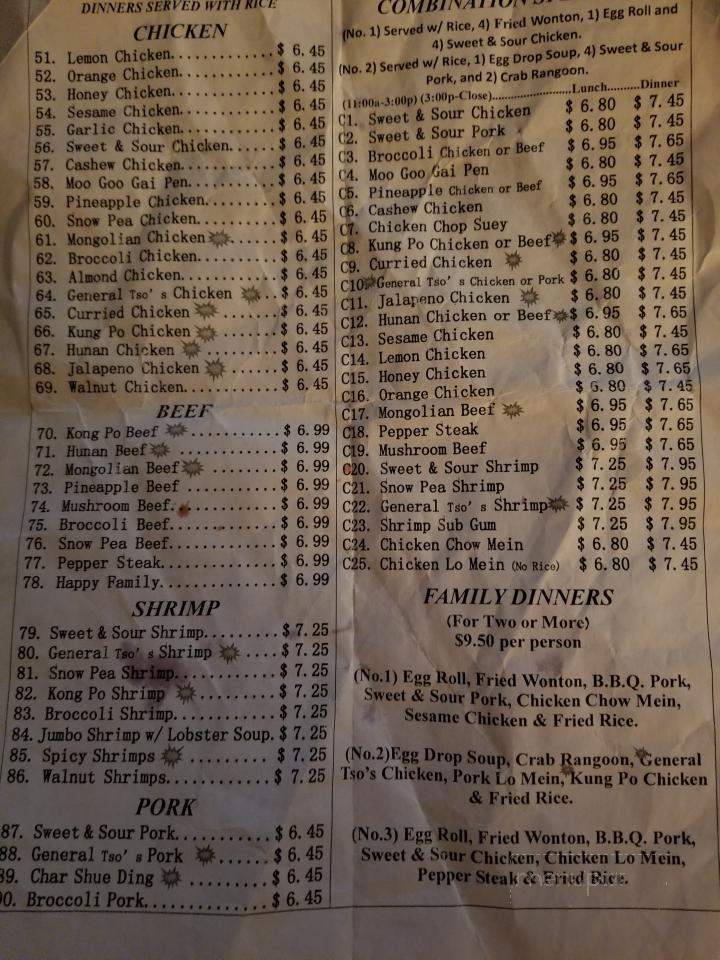 DINNERS SERVED WITH RICE
CHICKEN
51. Lemon Chicken............$ 6.45
52. Orange Chicken...........$ 6.45
53. Honey Chicken............$ 6.45
54. Sesame Chicken...........$ 6.45
55. Garlic Chicken...........$ 6.45
56. Sweet & Sour Chicken.....$ 6.45
57. Cashew Chicken...........$ 6.45
58. Moo Goo Gai Pen..........$ 6.45
59. Pineapple Chicken........$ 6.45
60. Snow Pea Chicken.........$ 6.45
61. Mongolian Chicken......$ 6.45
62. Broccoli Chicken.........$ 6.45
63. Almond Chicken...........$ 6.45
64. General Tso's Chicken ..$ 6.45
65. Curried Chicken .......$ 6.45
66. Kung Po Chicken .......$ 6.45
67. Hunan Chicken .........$ 6.45
68. Jalapeno Chicken ......$ 6.45
69. Walnut Chicken...........$ 6.45
BEEF
70. Kong Po Beef ...........$ 6.99
71. Hunan Beef ............$ 6.99
72. Mongolian Beef .........$ 6.99
73. Pineapple Beef ...........$ 6.99
74. Mushroom Beef............$ 6.99
75. Broccoli Beef............$ 6.99
76. Snow Pea Beef............$ 6.99
77. Pepper Steak.............$ 6.99
78. Happy Family.............$ 6.99
SHRIMP
79. Sweet & Sour Shrimp........$ 7.25
80. General Tso's Shrimp ....$ 7.25
81. Snow Pea Shrimp...........$ 7.25
82. Kong Po Shrimp .........$ 7.25
83. Broccoli Shrimp...........$ 7.25
84. Jumbo Shrimp w/ Lobster Soup.$ 7.25
85. Spicy Shrimps .........$ 7.25
86. Walnut Shrimps............$ 7.25
PORK
87. Sweet & Sour Pork..........$ 6.45
88. General Tso's Pork ......$ 6.45
89. Char Shue Ding .........$ 6.45
90. Broccoli Pork..............$ 6.45
COMBINATION
(No. 1) Served w/ Rice, 4) Fried Wonton, 1) Egg Roll and
4) Sweet & Sour Chicken.
(No. 2) Served w/ Rice, 1) Egg Drop Soup, 4) Sweet & Sour
Pork, and 2) Crab Rangoon.
(11:00a-3:00p) (3:00p-Close)....................Lunch.........Dinner
C1. Sweet & Sour Chicken $ 6.80 $ 7.45
C2. Sweet & Sour Pork $ 6.80 $ 7.45
C3. Broccoli Chicken or Beef $ 6.95 $ 7.65
C4. Moo Goo Gai Pen $ 6.80 $ 7.45
C5. Pineapple Chicken or Beef $ 6.95 $ 7.65
C6. Cashew Chicken $ 6.80 $ 7.45
C7. Chicken Chop Suey $ 6.80 $ 7.45
C8. Kung Po Chicken or Beef $ 6.95 $ 7.45
C9. Curried Chicken $ 6.80 $ 7.45
C10. General Tso's Chicken or Pork $ 6.80 $ 7.45
C11. Jalapeno Chicken $ 6.80 $ 7.45
C12. Hunan Chicken or Beef $ 6.95 $ 7.65
C13. Sesame Chicken $ 6.80 $ 7.45
C14. Lemon Chicken $ 6.80 $ 7.65
C15. Honey Chicken $ 6.80 $ 7.65
C16. Orange Chicken $ 6.80 $ 7.45
C17. Mongolian Beef $ 6.95 $ 7.65
C18. Pepper Steak $ 6.95 $ 7.65
C19. Mushroom Beef $ 6.95 $ 7.65
C20. Sweet & Sour Shrimp $ 7.25 $ 7.95
C21. Snow Pea Shrimp $ 7.25 $ 7.95
C22. General Tso's Shrimp $ 7.25 $ 7.95
C23. Shrimp Sub Gum $ 7.25 $ 7.95
C24. Chicken Chow Mein $ 6.80 $ 7.45
C25. Chicken Lo Mein (No Rice) $ 6.80 $ 7.45
FAMILY DINNERS
(For Two or More)
$9.50 per person
(No.1) Egg Roll, Fried Wonton, B.B.Q. Pork,
Sweet & Sour Pork, Chicken Chow Mein,
Sesame Chicken & Fried Rice.
(No.2)Egg Drop Soup, Crab Rangoon, General
Tso's Chicken, Pork Lo Mein, Kung Po Chicken
& Fried Rice.
(No.3) Egg Roll, Fried Wonton, B.B.Q. Pork,
Sweet & Sour Chicken, Chicken Lo Mein,
Pepper Steak & Fried Rice.